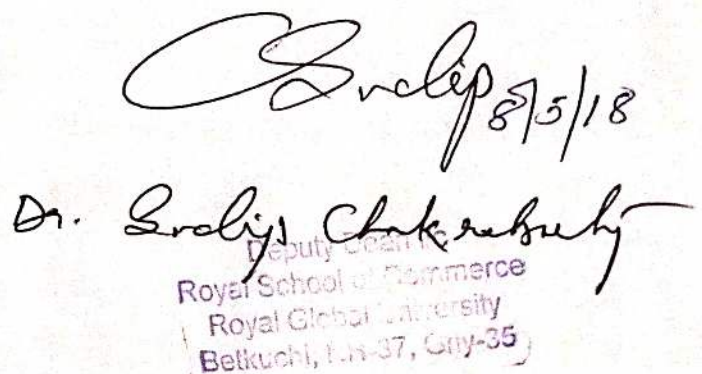 CSudip 8/5/18
Dr. Sudip Chakraborty
Deputy Dean
Royal School of Commerce
Royal Global University
Betkuchi, N.H-37, Ghy-35